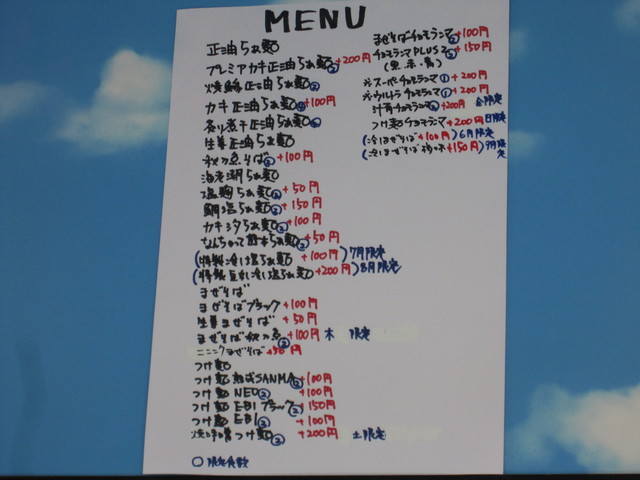 MENU
正油らぁ麺
プレミアカキ正油らぁ麺② +200円
焼鯖正油らぁ麺②
カキ正油らぁ麺 +100円
炙り煮干正油らぁ麺
生姜正油らぁ麺
秋刀魚そば② +100円
海老潮らぁ麺
塩麹らぁ麺② +50円
鯛塩らぁ麺② +150円
カキシタらぁ麺② +100円
なんちゃって熊本らぁ麺② +50円
(特製冷し塩らぁ麺 +100円)7月限定
(特製豆乳冷し塩らぁ麺 +200円)8月限定
まぜそば
まぜそばブラック +100円
生姜まぜそば +50円
まぜそば秋刀魚② +100円 木 限定
ニンニクまぜそば +50円
つけ麺
つけ麺熟成SANMA② +100円
つけ麺NEO② +100円
つけ麺EBIブラック② +150円
つけ麺EBI② +100円
焼味噌つけ麺② +200円 土限定
○限定食数
まぜそばチョモランマ② +100円
チョモランマPLUS2② +150円
(黒・赤・青)
※スーパーチョモランマ① +200円
※ウルトラチョモランマ① +200円
汁有チョモランマ +200円 金限定
つけ麺チョモランマ +200円 日限定
(冷しまぜそば +100円)6月限定
(冷しまぜそば +150円)9月限定